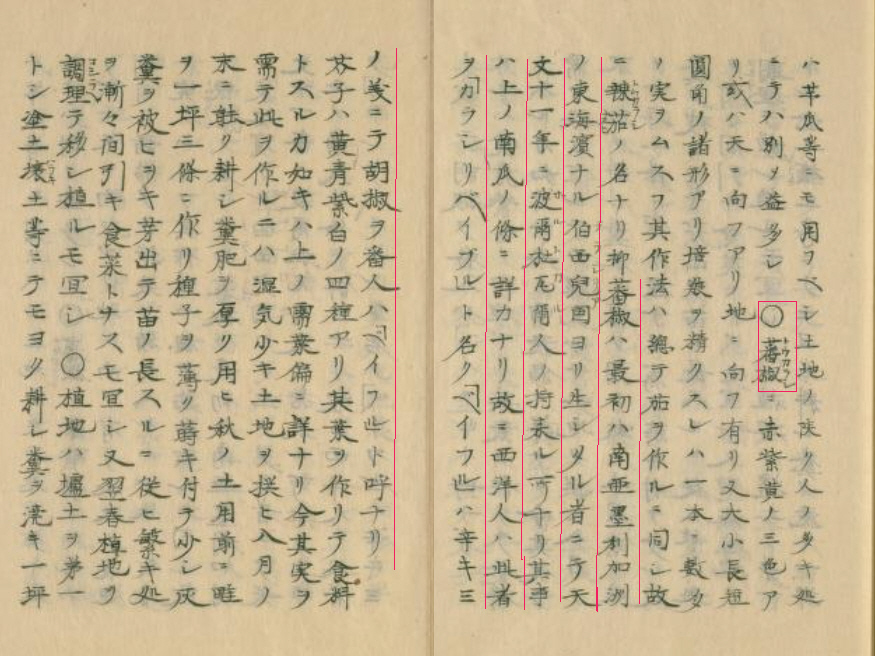 ハ草瓜等ニモ用フベシ土地ノ狭ク人ノ多キ処
ニテハ別〆益多シ○蕃椒ニ赤紫黄ノ三色ア
リ或ハ天ニ向フアリ地ニ向フ有リ又大小長短
圓角ノ諸形アリ培養ヲ精クスレハ一本ニ数多
ノ実ヲムスフ其作法ハ總テ茄ヲ作ルニ同シ故
ニ辣茄ノ名ナリ抑蕃椒ハ最初ハ南亜墨利加洲
ノ東海濱ナル伯西兒国ヨリ生シタル者ニテ天
文十一年ニ波爾杜瓦爾人ノ持来ル所ナリ其事
ハ上ノ南瓜ノ條ニ詳カナリ故ニ西洋人ハ此者
ヲカラシリベイプルト名クベイフルハ辛キミ
ノ義ニテ胡椒ヲ番人ハベイフルト呼ナリ
芥子ハ黄青紫白ノ四種アリ其葉ヲ作リテ食料
トスルカ如キハ上ノ需葉偏ニ詳ナリ今其実ヲ
需テ此ヲ作ルニハ湿気少キ土地ヲ撰ヒ八月ノ
末ニ能ク耕シ糞肥ヲ厚ク用ヒ秋ノ土用前ニ畦
ヲ一坪三條ニ作リ種子ヲ薄ク蒔キ付テ少シ灰
糞ヲ被ヒヲキ芽出テ苗ノ長スルニ従ヒ繁キ処
ヲ漸々間引キ食菜トナスモ宜シ又翌春植地ヲ
調理テ移シ植ルモ宜シ○植地ハ壚土ヲ第一
トシ塗土壌土等ニテモヨク耕シ糞ヲ澆キ一坪